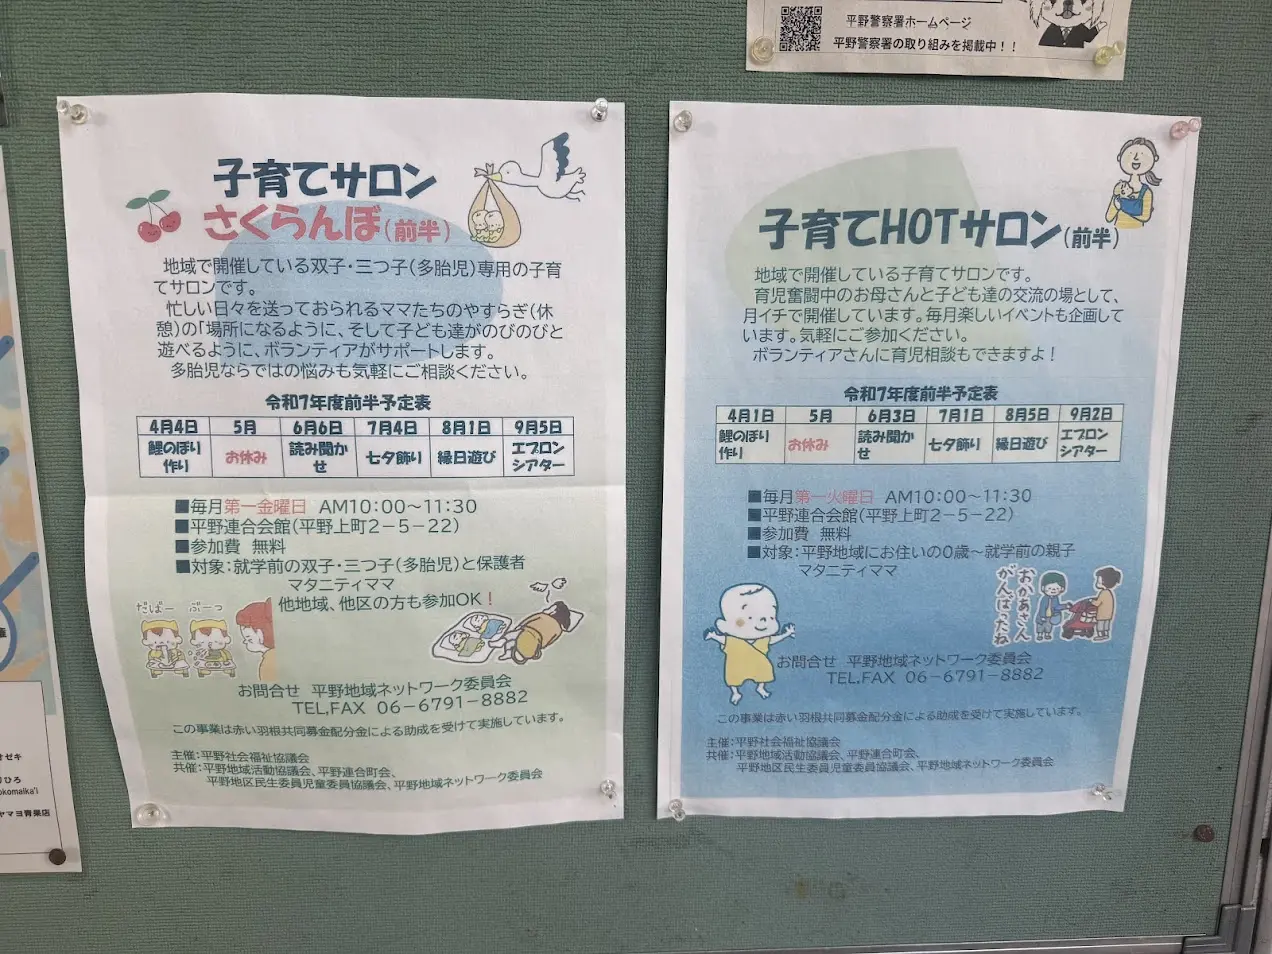 平野警察署ホームページ
平野警察署の取り組みを掲載中！！
子育てサロン
さくらんぼ(前半)
地域で開催している双子・三つ子(多胎児)専用の子育
てサロンです。
忙しい日々を送っておられるママたちのやすらぎ(休
憩)の「場所になるように、そして子ども達がのびのびと
遊べるように、ボランティアがサポートします。
多胎児ならではの悩みも気軽にご相談ください。
令和7年度前半予定表
4月4日 5月 6月6日 7月4日 8月1日 9月5日
鯉のぼり作り お休み 読み聞かせ 七夕飾り 縁日遊び エプロンシアター
■毎月第一金曜日 AM10：00～11：30
■平野連合会館(平野上町2－5－22)
■参加費 無料
■対象：就学前の双子・三つ子(多胎児)と保護者
マタニティママ
他地域、他区の方も参加OK！
だばー ぶーっ
お問合せ 平野地域ネットワーク委員会
TEL,FAX 06－6791－8882
この事業は赤い羽根共同募金配分金による助成を受けて実施しています。
主催：平野社会福祉協議会
共催：平野地域活動協議会、平野連合町会、
平野地区民生委員児童委員協議会、平野地域ネットワーク委員会
子育てHOTサロン(前半)
地域で開催している子育てサロンです。
育児奮闘中のお母さんと子ども達の交流の場として、
月イチで開催しています。毎月楽しいイベントも企画して
います。気軽にご参加ください。
ボランティアさんに育児相談もできますよ！
令和7年度前半予定表
4月1日 5月 6月3日 7月1日 8月5日 9月2日
鯉のぼり作り お休み 読み聞かせ 七夕飾り 縁日遊び エプロンシアター
■毎月第一火曜日 AM10：00～11：30
■平野連合会館(平野上町2－5－22)
■参加費 無料
■対象：平野地域にお住いの0歳～就学前の親子
マタニティママ
おかあさん
がんばったね
お問合せ 平野地域ネットワーク委員会
TEL,FAX 06－6791－8882
この事業は赤い羽根共同募金配分金による助成を受けて実施しています。
主催：平野社会福祉協議会
共催：平野地域活動協議会、平野連合町会、
平野地区民生委員児童委員協議会、平野地域ネットワーク委員会
オゼキ
ひろ
okomaika'i
ヤマヨ青果店